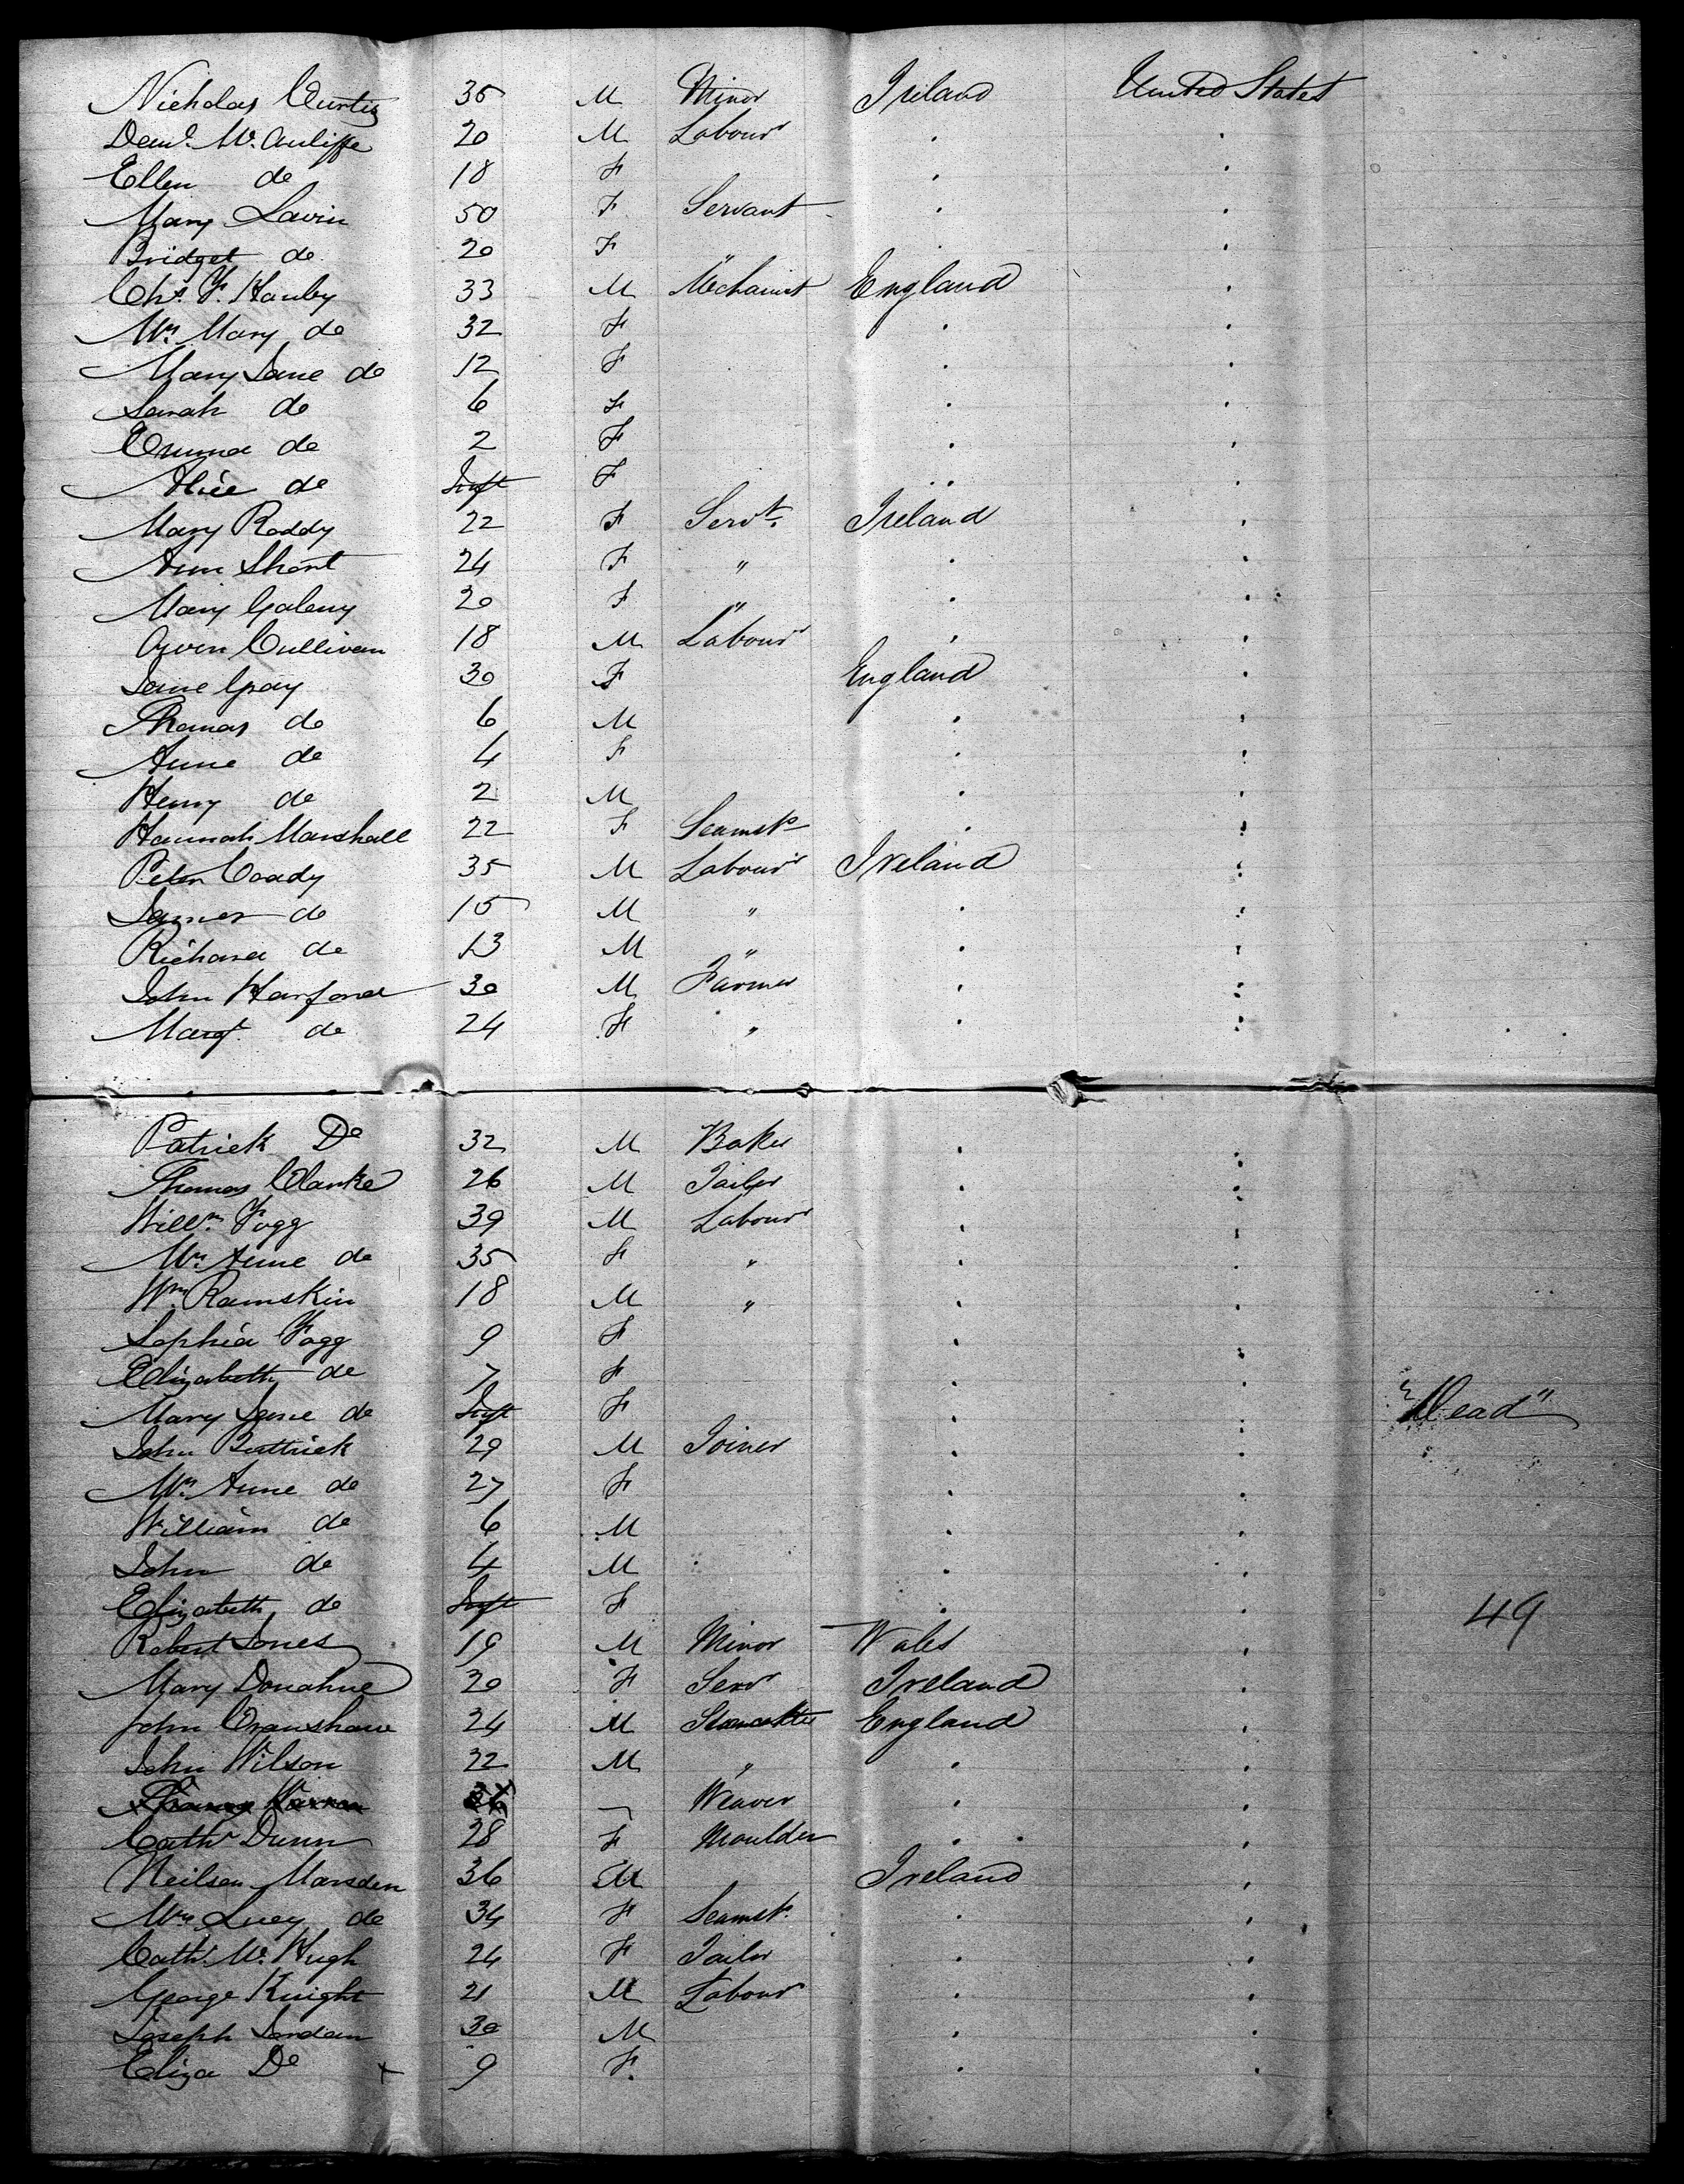 Nicholas Curtis 35 M Minor Ireland United States
Denis. Mc. Auliffe 20 M Labourr . .
Ellen do 18 F . .
Mary Lavin 50 F Servant . .
Bridget do 20 F " . .
Chs. F. Hanby 33 M Mechanist England .
Mrs. Mary do 32 F . .
Mary Jane do 12 F . .
Sarah do 6 F . .
Emma do 2 F . .
Alice do Inft F . . .
Mary Roddy 22 F Servt. Ireland .
Ann Short 24 F " . .
Mary Galeny 20 F " . .
Owen Cullivan 18 M Labourr . .
Jane Gray 30 F England .
Thomas do 6 M . .
Anne do 4 F . .
Henry do 2 M . .
Hannah Marshall 22 F Seamsts . .
Peter Coady 35 M Labourr Ireland .
James do 15 M " . .
Richard do 13 M " . .
John Harford 30 M Farmer . .
Margt. do 24 F " . .
Patrick Do 32 M Baker . .
Thomas Clarke 26 M Tailor . .
Willm. Fogg 39 M Labourr . .
Mrs. Anne do 35 F " . .
Wm. Ramskin 18 M " . .
Sophia Fogg 9 F . .
Elizabeth do 7 F . .
Mary Jane do Inft F . . "Dead"
John Buttrick 29 M Joiner . .
Mrs. Anne do 27 F . .
William do 6 M . .
John do 4 M . .
Elizabeth do Inft F . . 49
Robert Jones 19 M Minor Wales .
Mary Donahue 20 F Serv Ireland .
John Cranshaw 24 M England .
John Wilson 22 M " . .
Weaver . .
Cathr Dunn 28 F Moulder . .
Neilson Marsden 36 M Ireland .
Mrs Lucy do 34 F Seamst. . .
Cath. Mc. Hugh 24 F Tailor . .
George Knight 21 M Labourr . .
Joseph Jordan 30 M . .
Eliza Do x 9 F. . .